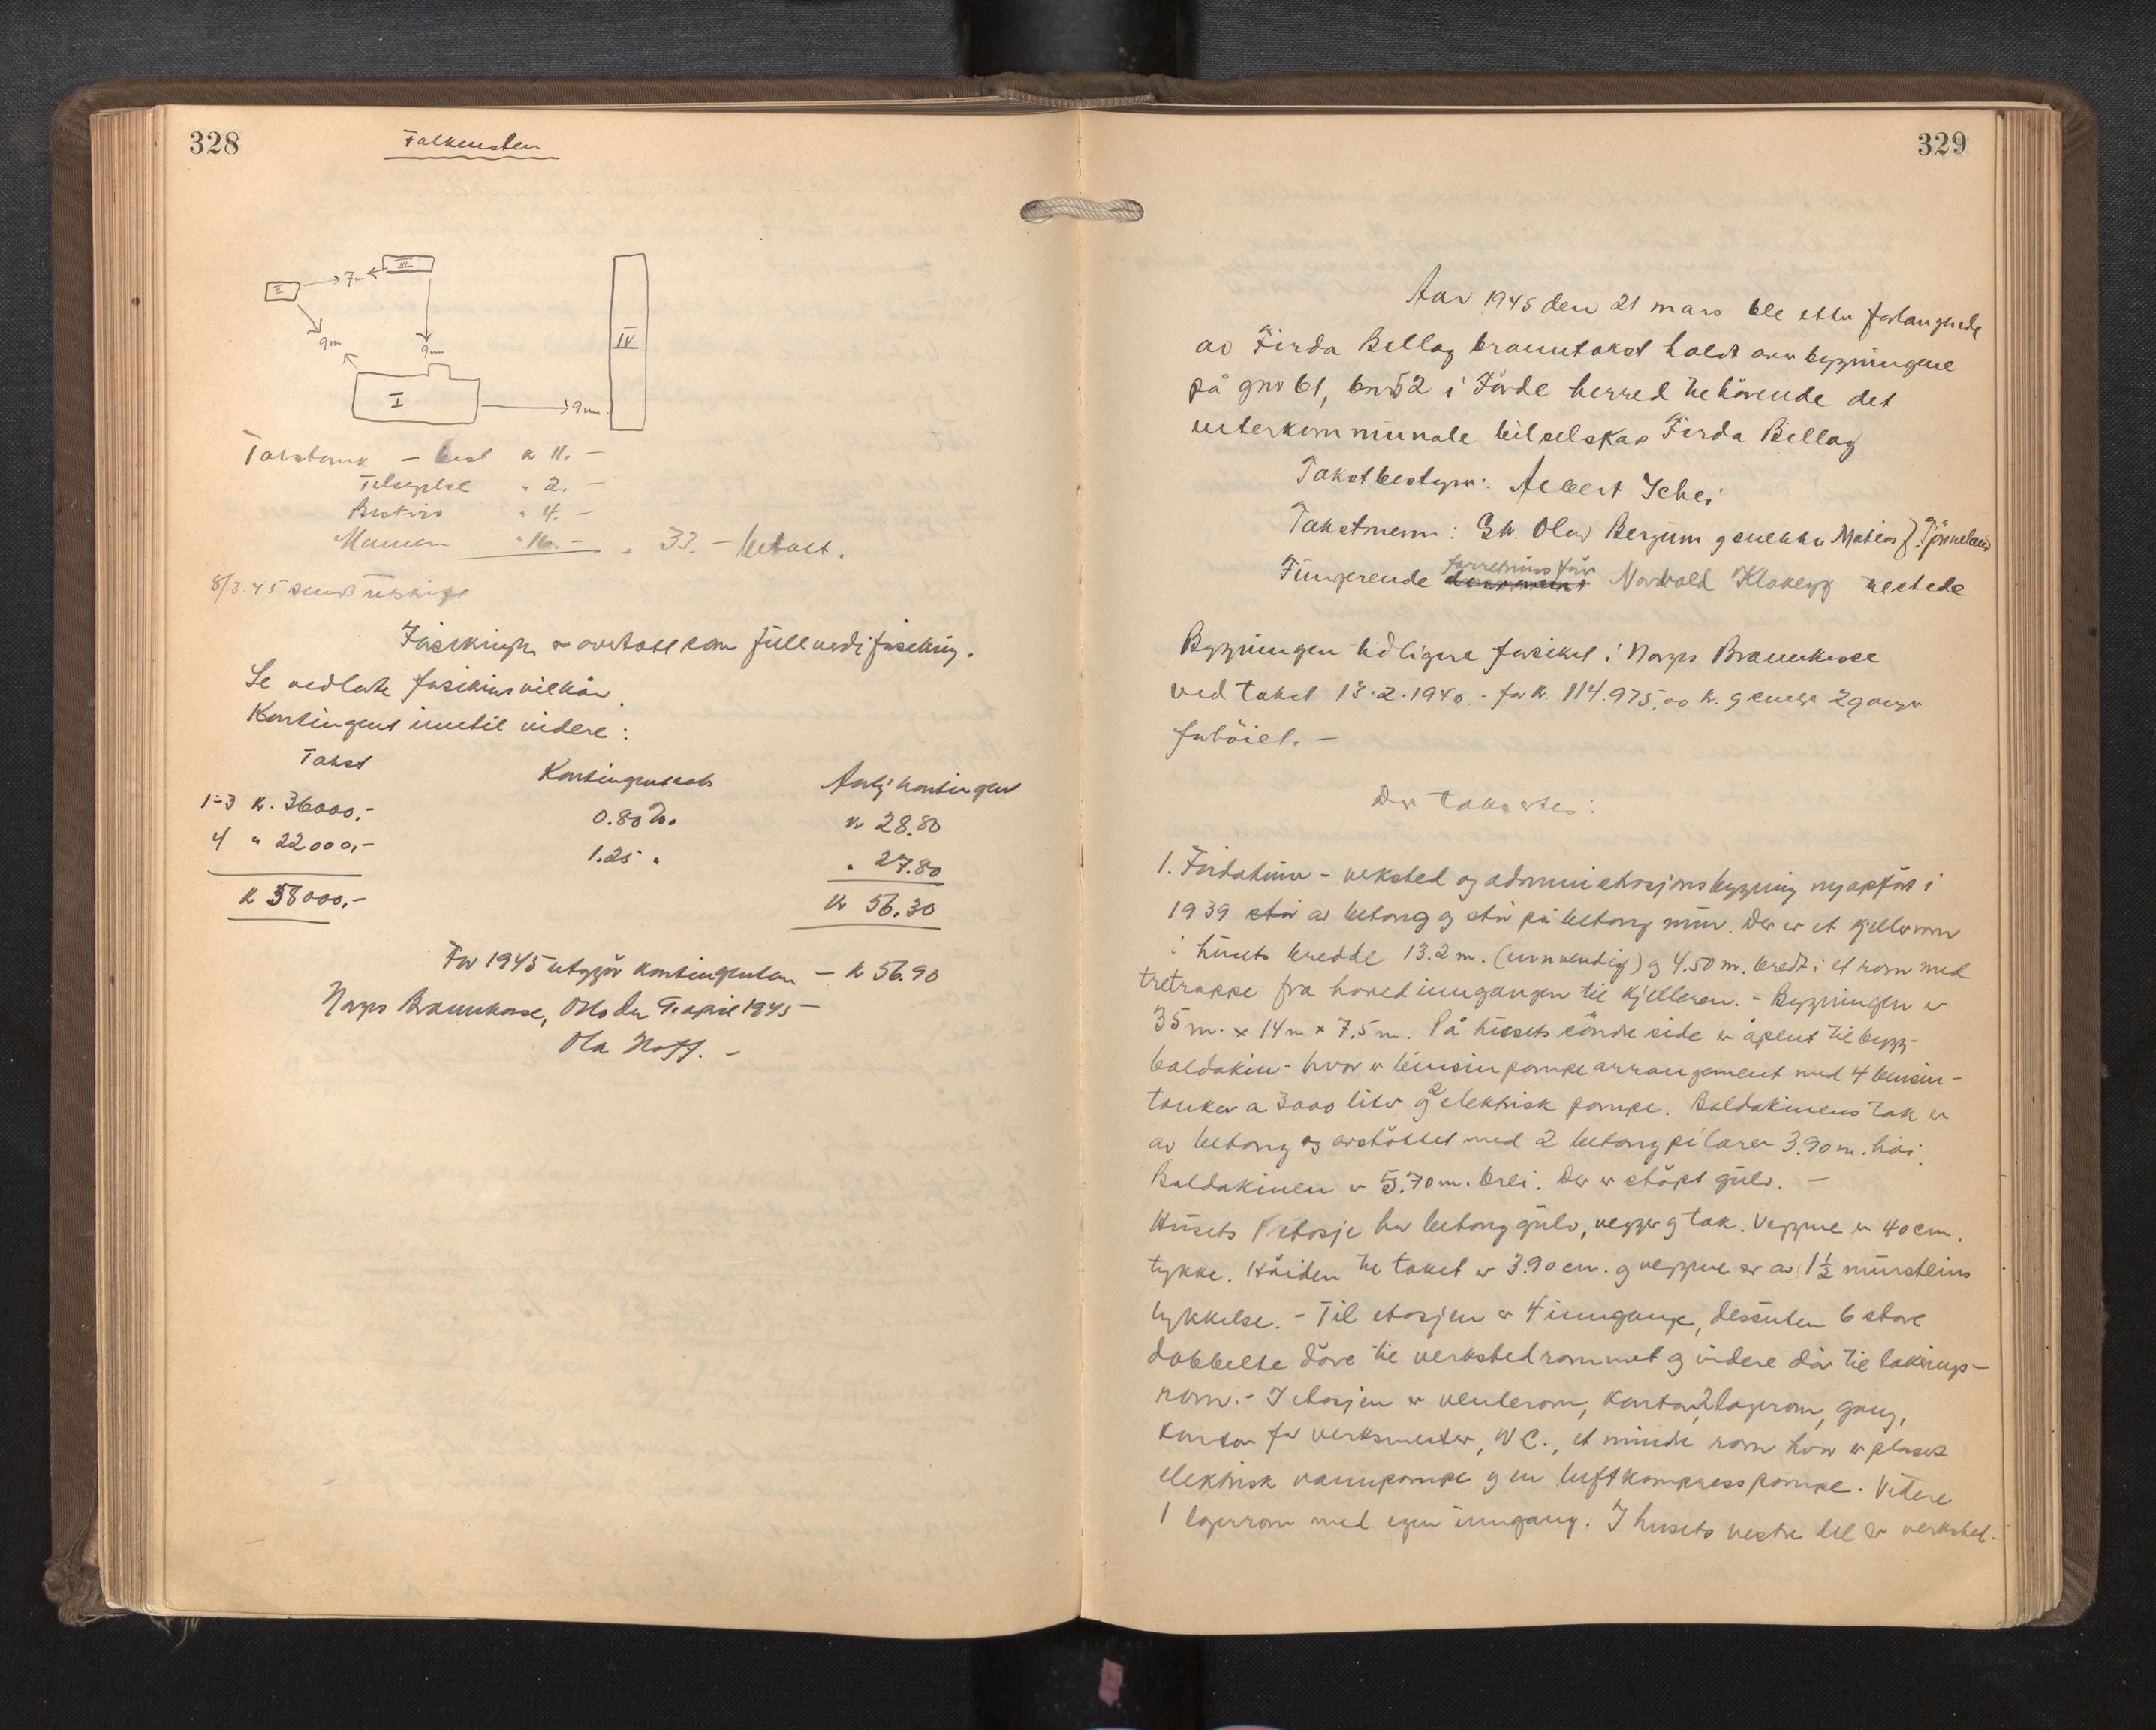 328
Falkensten
II
→ 7m ←
III
9m
9m
I
→ 9m
IV
Takstbank – best k 11. –
Tilsigelse " 2. –
Beskriv " 4. –
Mennen " 16. – " 33. – betalt.
8/3.45 sendt utskrift
Forsikringen er overtatt som fullverdiforsikring.
Se vedlagte forsikringsvilkår.
Kontingent inntil videre:
Takst Kontingentsats Årlig kontingent
1-3 kr. 36000,- 0.80 ‰ kr 28.80
4 " 22000,- 1.25 " " 27.80
kr 58000,- kr 56.30
For 1945 utgjør kontingenten – kr 56.90
Norges Brannkasse, Oslo den 9. april 1945 –
Ola Hoff. –
329
Aar 1945 den 21 mars ble etter forlangende
av Firda Billag branntakst holdt over bygningene
på gnr 61, bnr 52 i Förde herred tilhörende det
interkommunale bilselskap Firda Billag
Takstbestyrer: Albert Schei
Takstmenn: Gh. Olav Bergum og snekker Mathias J. Tjönneland
Fungerende forretningsförer Norvald Klakegg möttede
Bygningen tidligere forsikret i Norges Brannkasse
ved takst 13.2.1940. – for kr. 114.975,00 kr. og senere 2 ganger
forhöiet. –
Der takseres:
1. Firdatun – verksted og administrasjonsbygning nyopfört i
1939 står av betong og står på betong mur. Der er et kjellerrom
i husets bredde 13.2 m. (innvendig) og 4.50 m. bredt i et rom med
tretrappe fra hovedinngangen til kjelleren. – Bygningen er
35 m. x 14 m x 7,5 m. På husets söndre side er åpent tilbygg-
baldakin – hvor er bensinpumpearrangement med 4 bensin-
tanker a 3000 liter og 2 elektrisk pumpe. Baldakinens tak er
av betong og avstöttet med 2 betongpilarer 3.90 m. höi.
Baldakinen er 5.70 m. brei. Der er stöpt gulv. –
Husets 1 etasje har betonggulv, vegger og tak. Veggene er 40 cm.
tykke. Höiden til taket er 3.90 cm. og veggene er av 1½ mursteins
tykkelse. – Til etasjen er 4 innganger, dessuten 6 store
dobbelte döre til verkstedrommet og videre dör til lakerings-
rom. – I etasjen er venterom, kontor, 2 lagerrom, gang,
kontor for verksmester, W.C., et mindre rom hvor er plasert
elektrisk vannpumpe og en luftkompresspumpe. Videre
1 lagerrom med egen inngang. I husets vestre del er verksted-